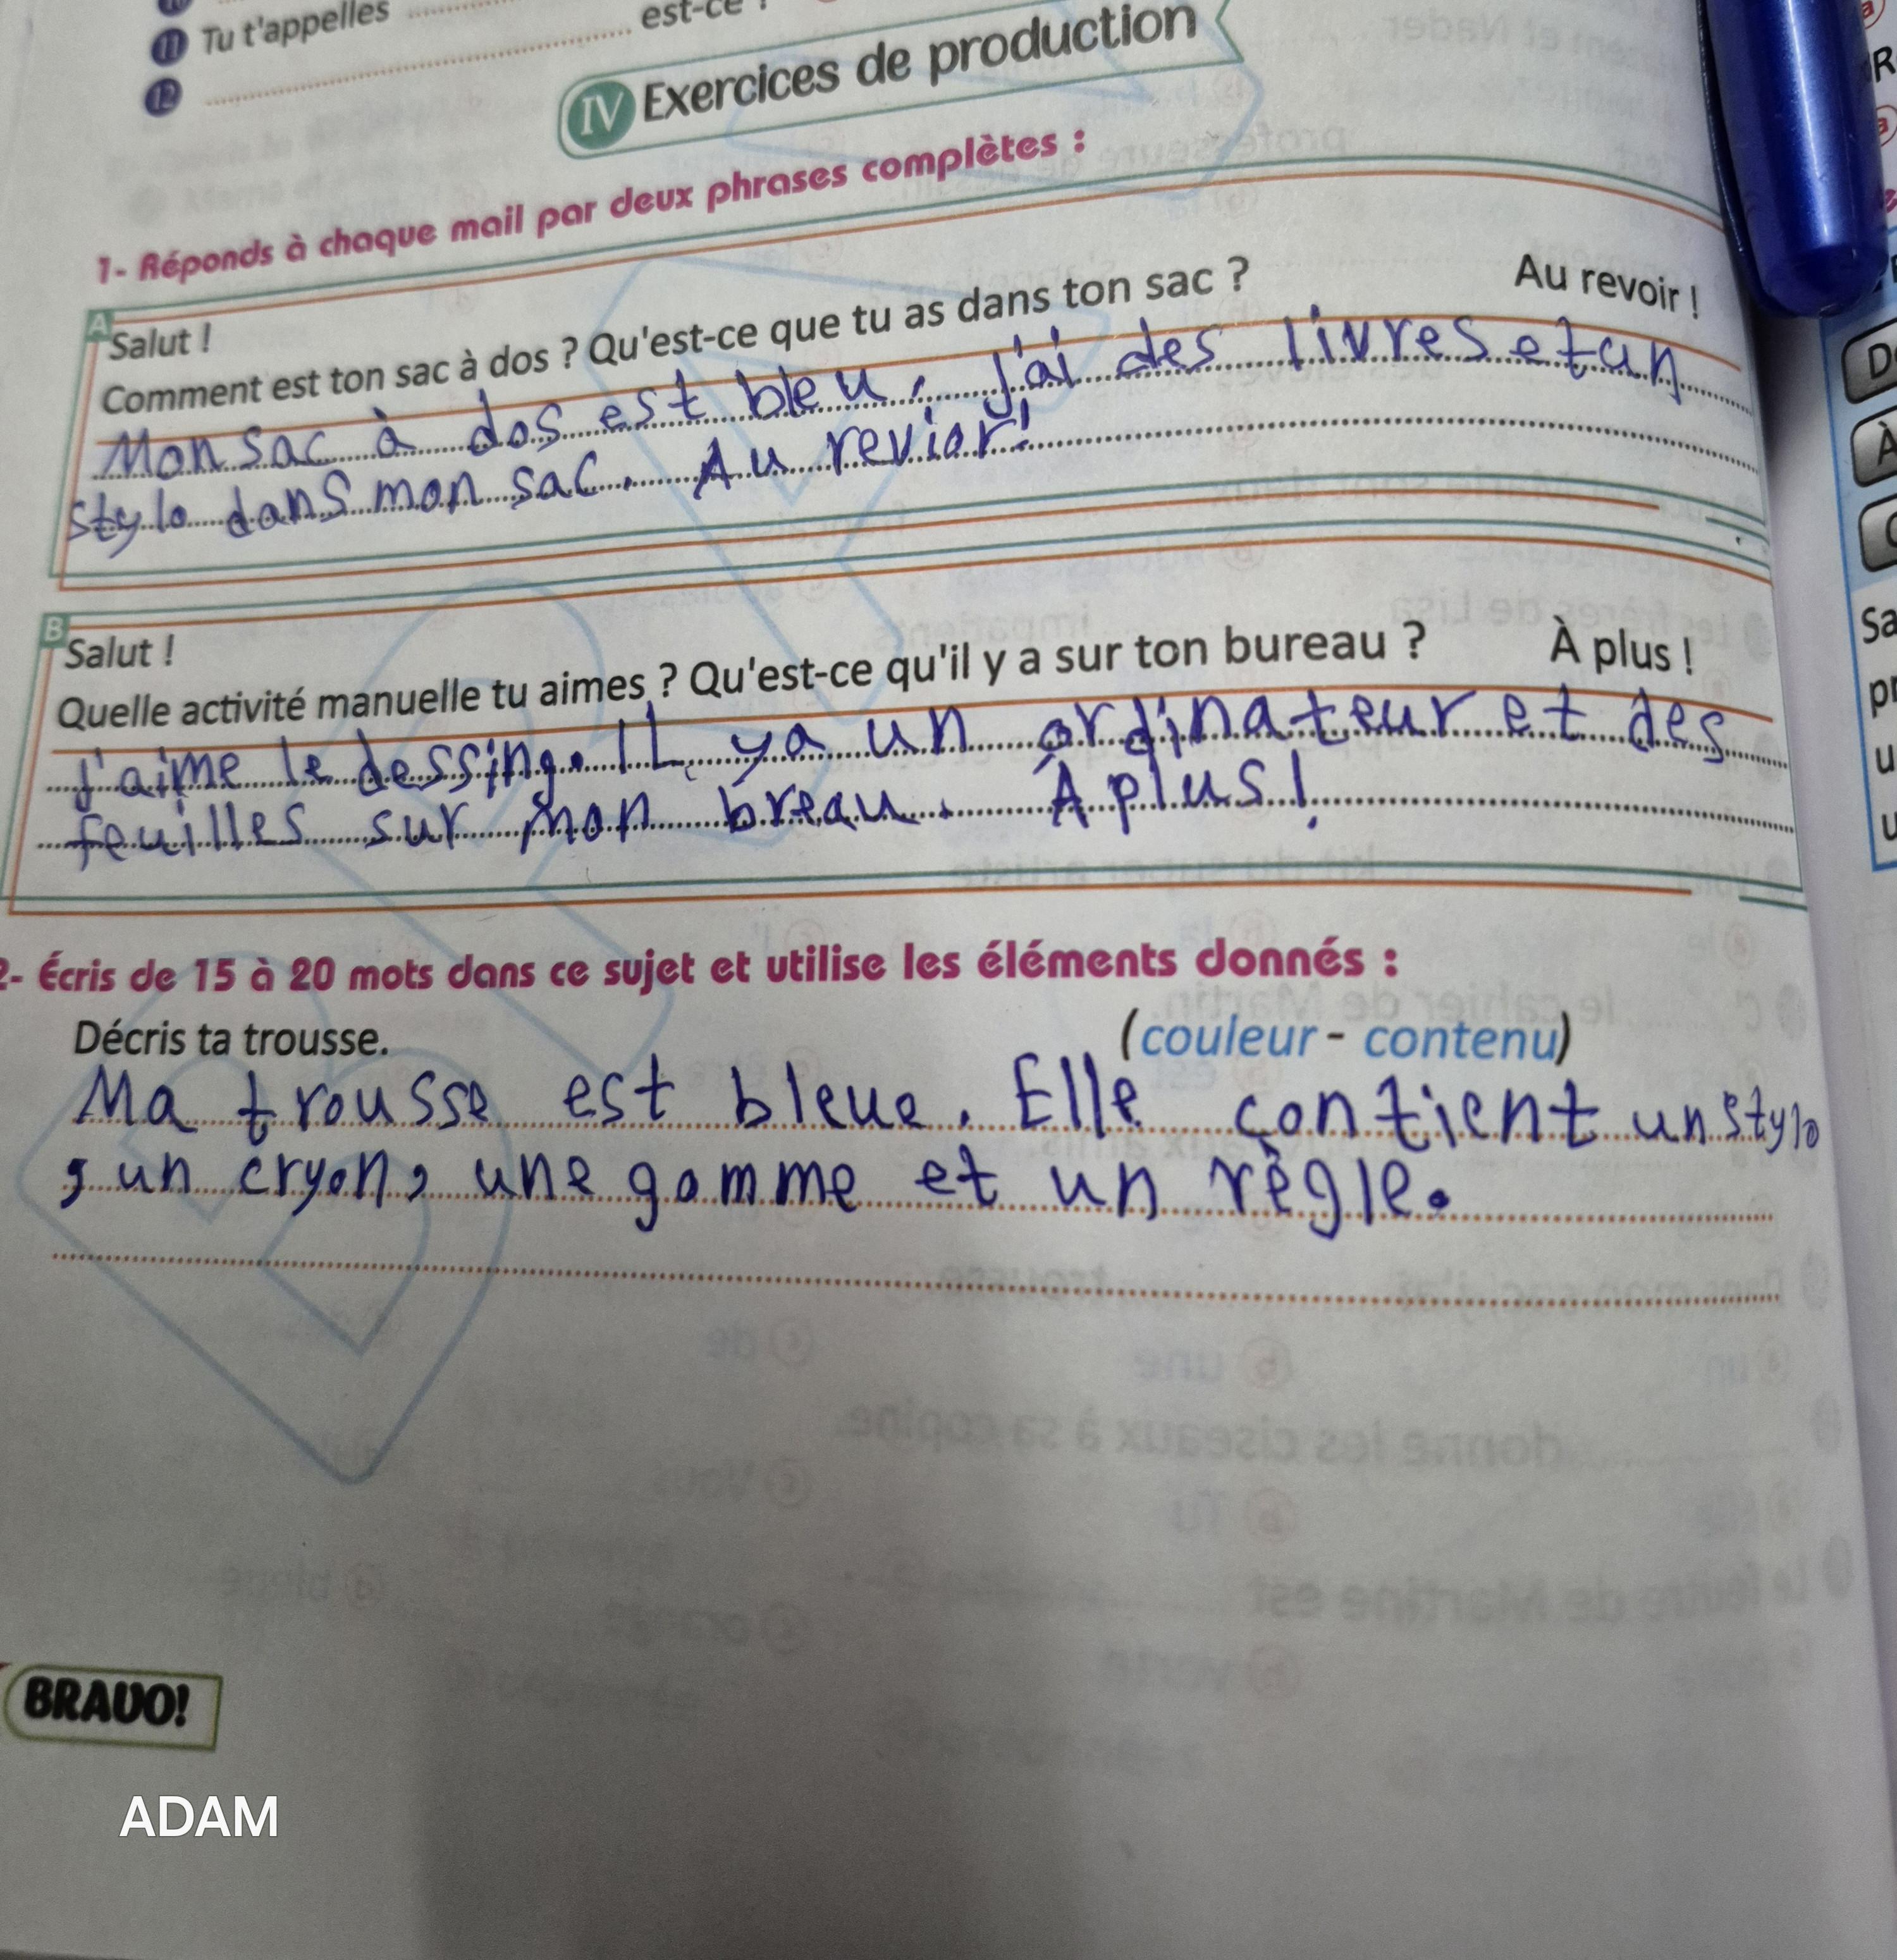 11 Tu t'appelles
est-ce ?
12
IV Exercices de production
1- Réponds à chaque mail par deux phrases complètes :
A
Salut !
Comment est ton sac à dos ? Qu'est-ce que tu as dans ton sac ? Au revoir !
Mon sac à dos est bleu, j'ai des livres et un
stylo dans mon sac. Au revior!
B
Salut !
Quelle activité manuelle tu aimes ? Qu'est-ce qu'il y a sur ton bureau ? À plus !
j'aime le dessing. IL ya un ordinateur et des
feuilles sur mon breau. À plus!
2- Écris de 15 à 20 mots dans ce sujet et utilise les éléments donnés :
Décris ta trousse. (couleur - contenu)
Ma trousse est bleue. Elle contient un stylo
, un cryon, une gomme et un règle.
BRAVO!
ADAM